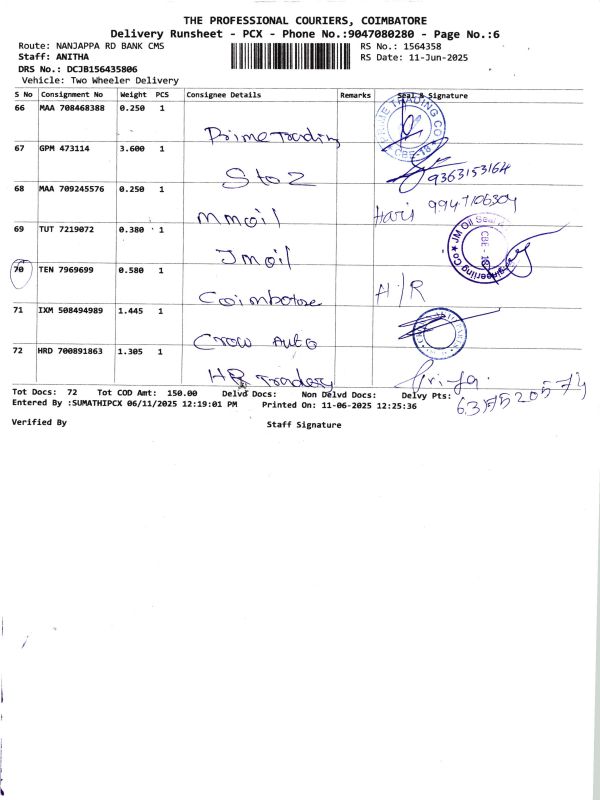 THE PROFESSIONAL COURIERS, COIMBATORE
Delivery Runsheet - PCX - Phone No.:9047080280 - Page No.:6
Route: NANJAPPA RD BANK CMS
RS No.: 1564358
Staff: ANITHA
RS Date: 11-Jun-2025
DRS No.: DCJB156435806
Vehicle: Two Wheeler Delivery
S No Consignment No Weight PCS Consignee Details Remarks Seal & Signature
66 MAA 708468388 0.250 1
Prime Trading
PRIME TRADING CO
CBE-18
67 GPM 473114 3.600 1
S to Z
9363153164
68 MAA 709245576 0.250 1
mmoil
Haris 9947106304
69 TUT 7219072 0.380 1
Jmoil
JM Oil Seal
Engineering Co
CBE - 18
70 TEN 7969699 0.580 1
Coimbatore
H/R
71 IXM 508494989 1.445 1
Crow Auto
72 HRD 700891863 1.305 1
HR Traders
6317520574
Tot Docs: 72 Tot COD Amt: 150.00 Delvd Docs: Non Delvd Docs: Delvy Pts:
Entered By :SUMATHIPCX 06/11/2025 12:19:01 PM Printed On: 11-06-2025 12:25:36
Verified By
Staff Signature